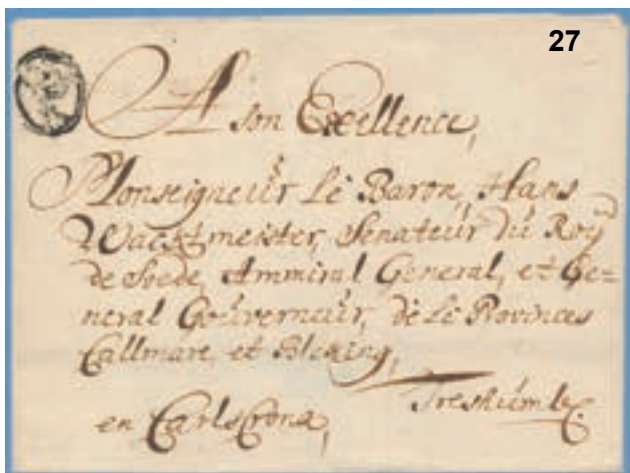 27
A son Excellence,
Monseigneur Le Baron, Hans
Wachtmeister, Senateur du Roÿ
de Suede, Ammiral General, et Ge=
neral Gouverneur, de Le Provinces
Callmare, et Bleking,
Treshumb
en CarlsCrona,